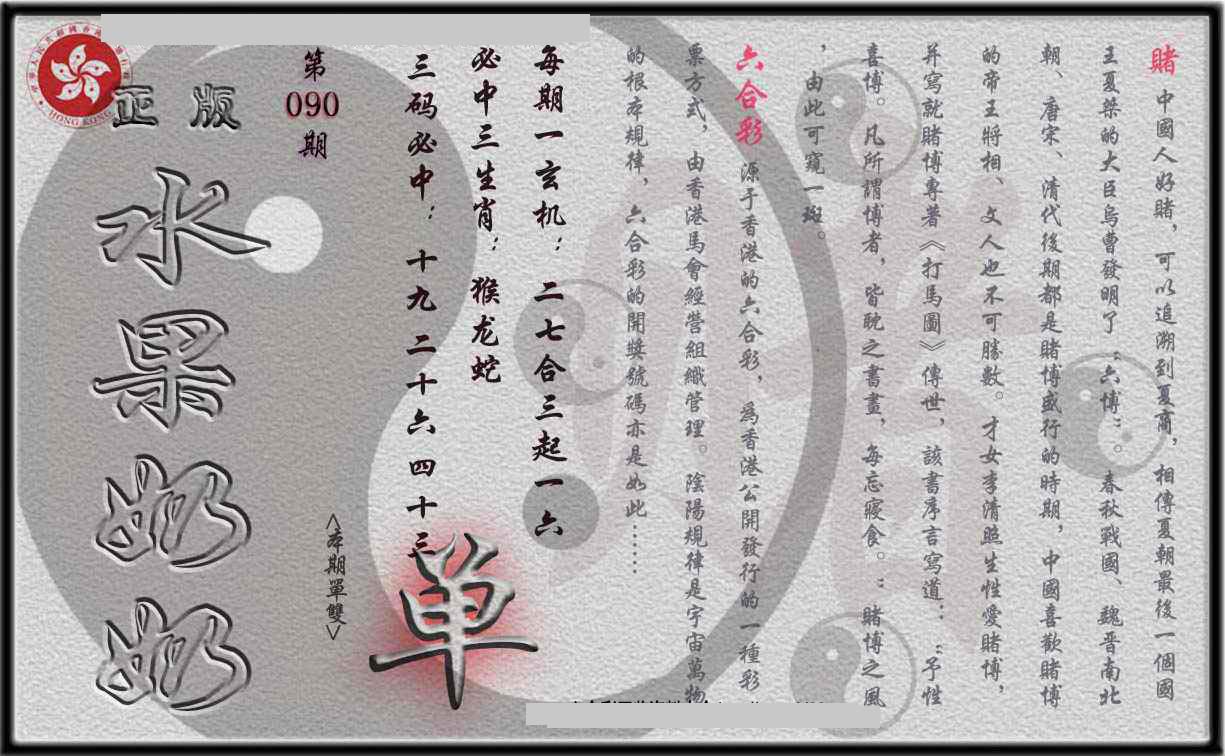 賭 中國人好賭，可以追溯到夏商，相傳夏朝最後一個國
王夏桀的大臣烏曹發明了“六博”。春秋戰國、魏晋南北
朝、唐宋、清代後期都是賭博盛行的時期，中國喜歡賭博
的帝王將相、文人也不可勝數。才女李清照生性愛賭博，
并寫就賭博專著《打馬圖》傳世，該書序言寫道：“予性
喜博。凡所謂博者，皆耽之書晝，每忘寢食。”賭博之風
，由此可窺一斑。
六合彩 源于香港的六合彩，為香港公開發行的一種彩
票方式，由香港馬會經營組織管理。陰陽規律是宇宙萬物
的根本規律，六合彩的開獎號碼亦是如此……
每期一玄机：二七合三起一六
必中三生肖：猴龙蛇
三码必中：十九二十六四十三
<本期單雙>
单
第
090
期
正版
水果奶奶
HONG KONG